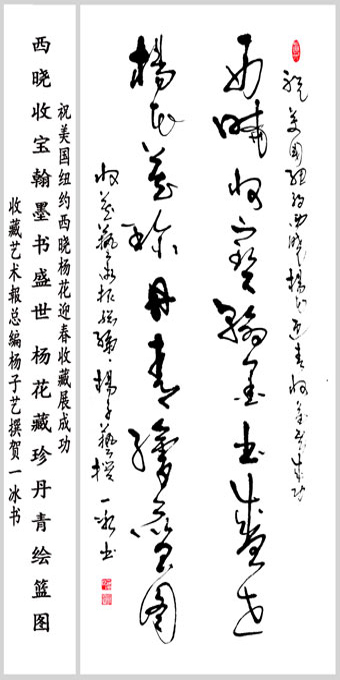 祝美国纽约西晓楊花迎春收藏展成功
西晓收宝翰墨书盛世
楊花藏珍丹青繪蓝图
收藏藝术报总编：楊子藝撰一冰书
祝美国纽约西晓杨花迎春收藏展成功
西晓收宝翰墨书盛世 杨花藏珍丹青绘篮图
收藏艺术报总编杨子艺撰贺一冰书